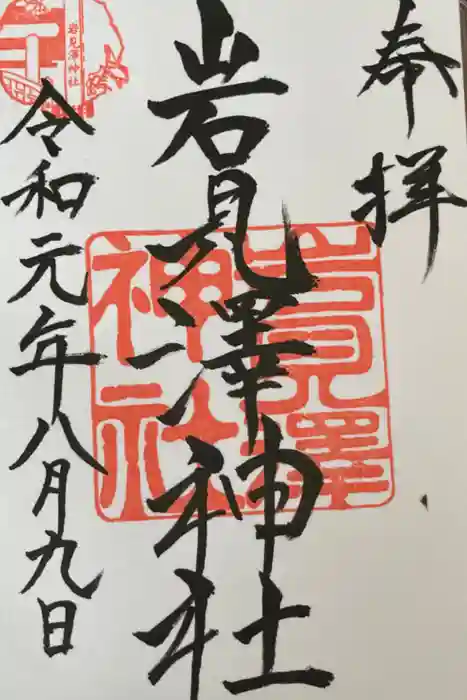 奉拝
岩見澤神社
岩見澤
神社
令和元年八月九日
岩見澤神社